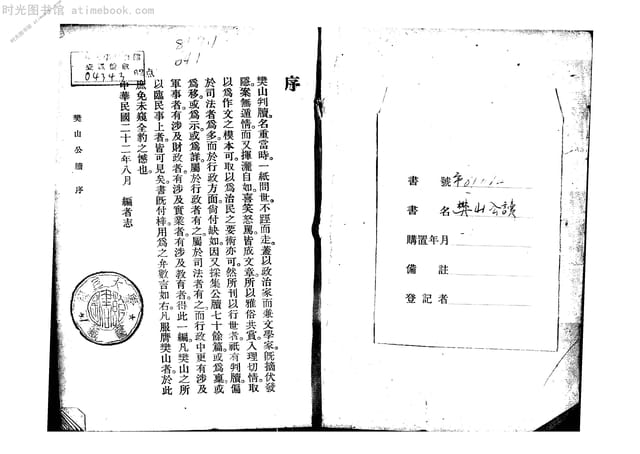 时光图书馆 atimebook.com
序
樊山判牘。名重當時。一紙問世。不踁而走。蓋以政治家而兼文學家。旣摘伏發
隱。案無遁情。而又揮灑自如。喜笑怒罵。皆成文章。所以雅俗共賞。入理切情。取
以爲作文之模本可。取以爲治民之要術亦可。然所刊以行世者。祇有判牘。偏
於司法者爲多。而於行政方面。尙付缺如。因又採集公牘七十餘篇。或爲稟。或
爲移。或爲示。或爲詳。屬於行政者有之。屬於司法者有之。而行政中更有涉及
軍事者。有涉及財政者。有涉及實業者。有涉及敎育者。得此一編。凡樊山之所
以臨民事上者。皆可見矣。書旣付梓。用爲之弁數言如右。凡服膺樊山者。於此
庶免未窺全豹之憾也。
中華民國二十二年八月 編者志
樊山公牘 序
04343
書號
書名 樊山公牘
購置年月
備註
登記者